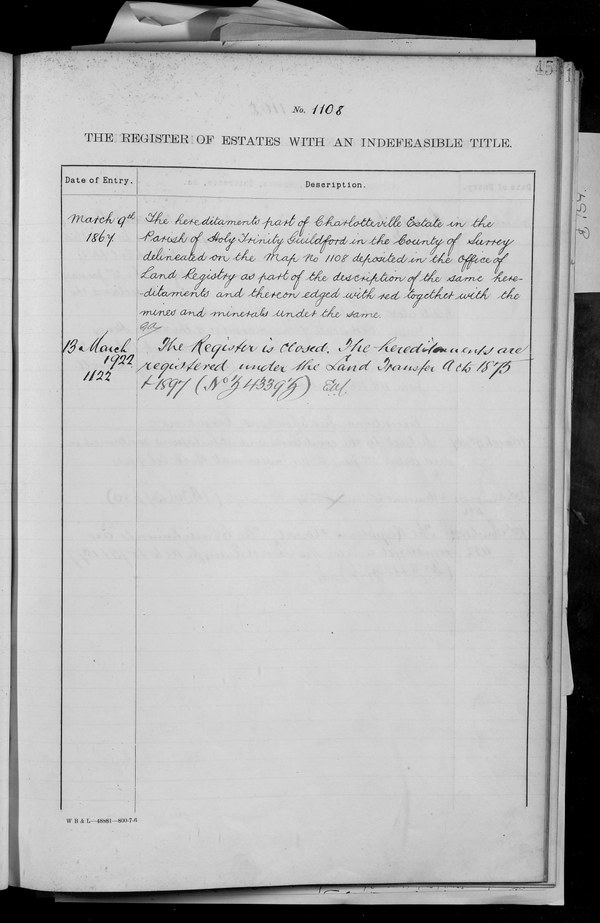 45
No. 1108
THE REGISTER OF ESTATES WITH AN INDEFEASIBLE TITLE.
Date of Entry.
Description.
March 9th
1867
The hereditaments part of Charlotteville Estate in the
Parish of Holy Trinity Guildford in the County of Surrey
delineated on the Map No 1108 deposited in the office of
Land Registry as part of the description of the same here-
-ditaments and thereon edged with red together with the
mines and minerals under the same.
13 March
1922
1122
The Register is closed. The hereditaments are
registered under the Land Transfer Acts 1875
& 1897
W B & L—48881—800-7-6